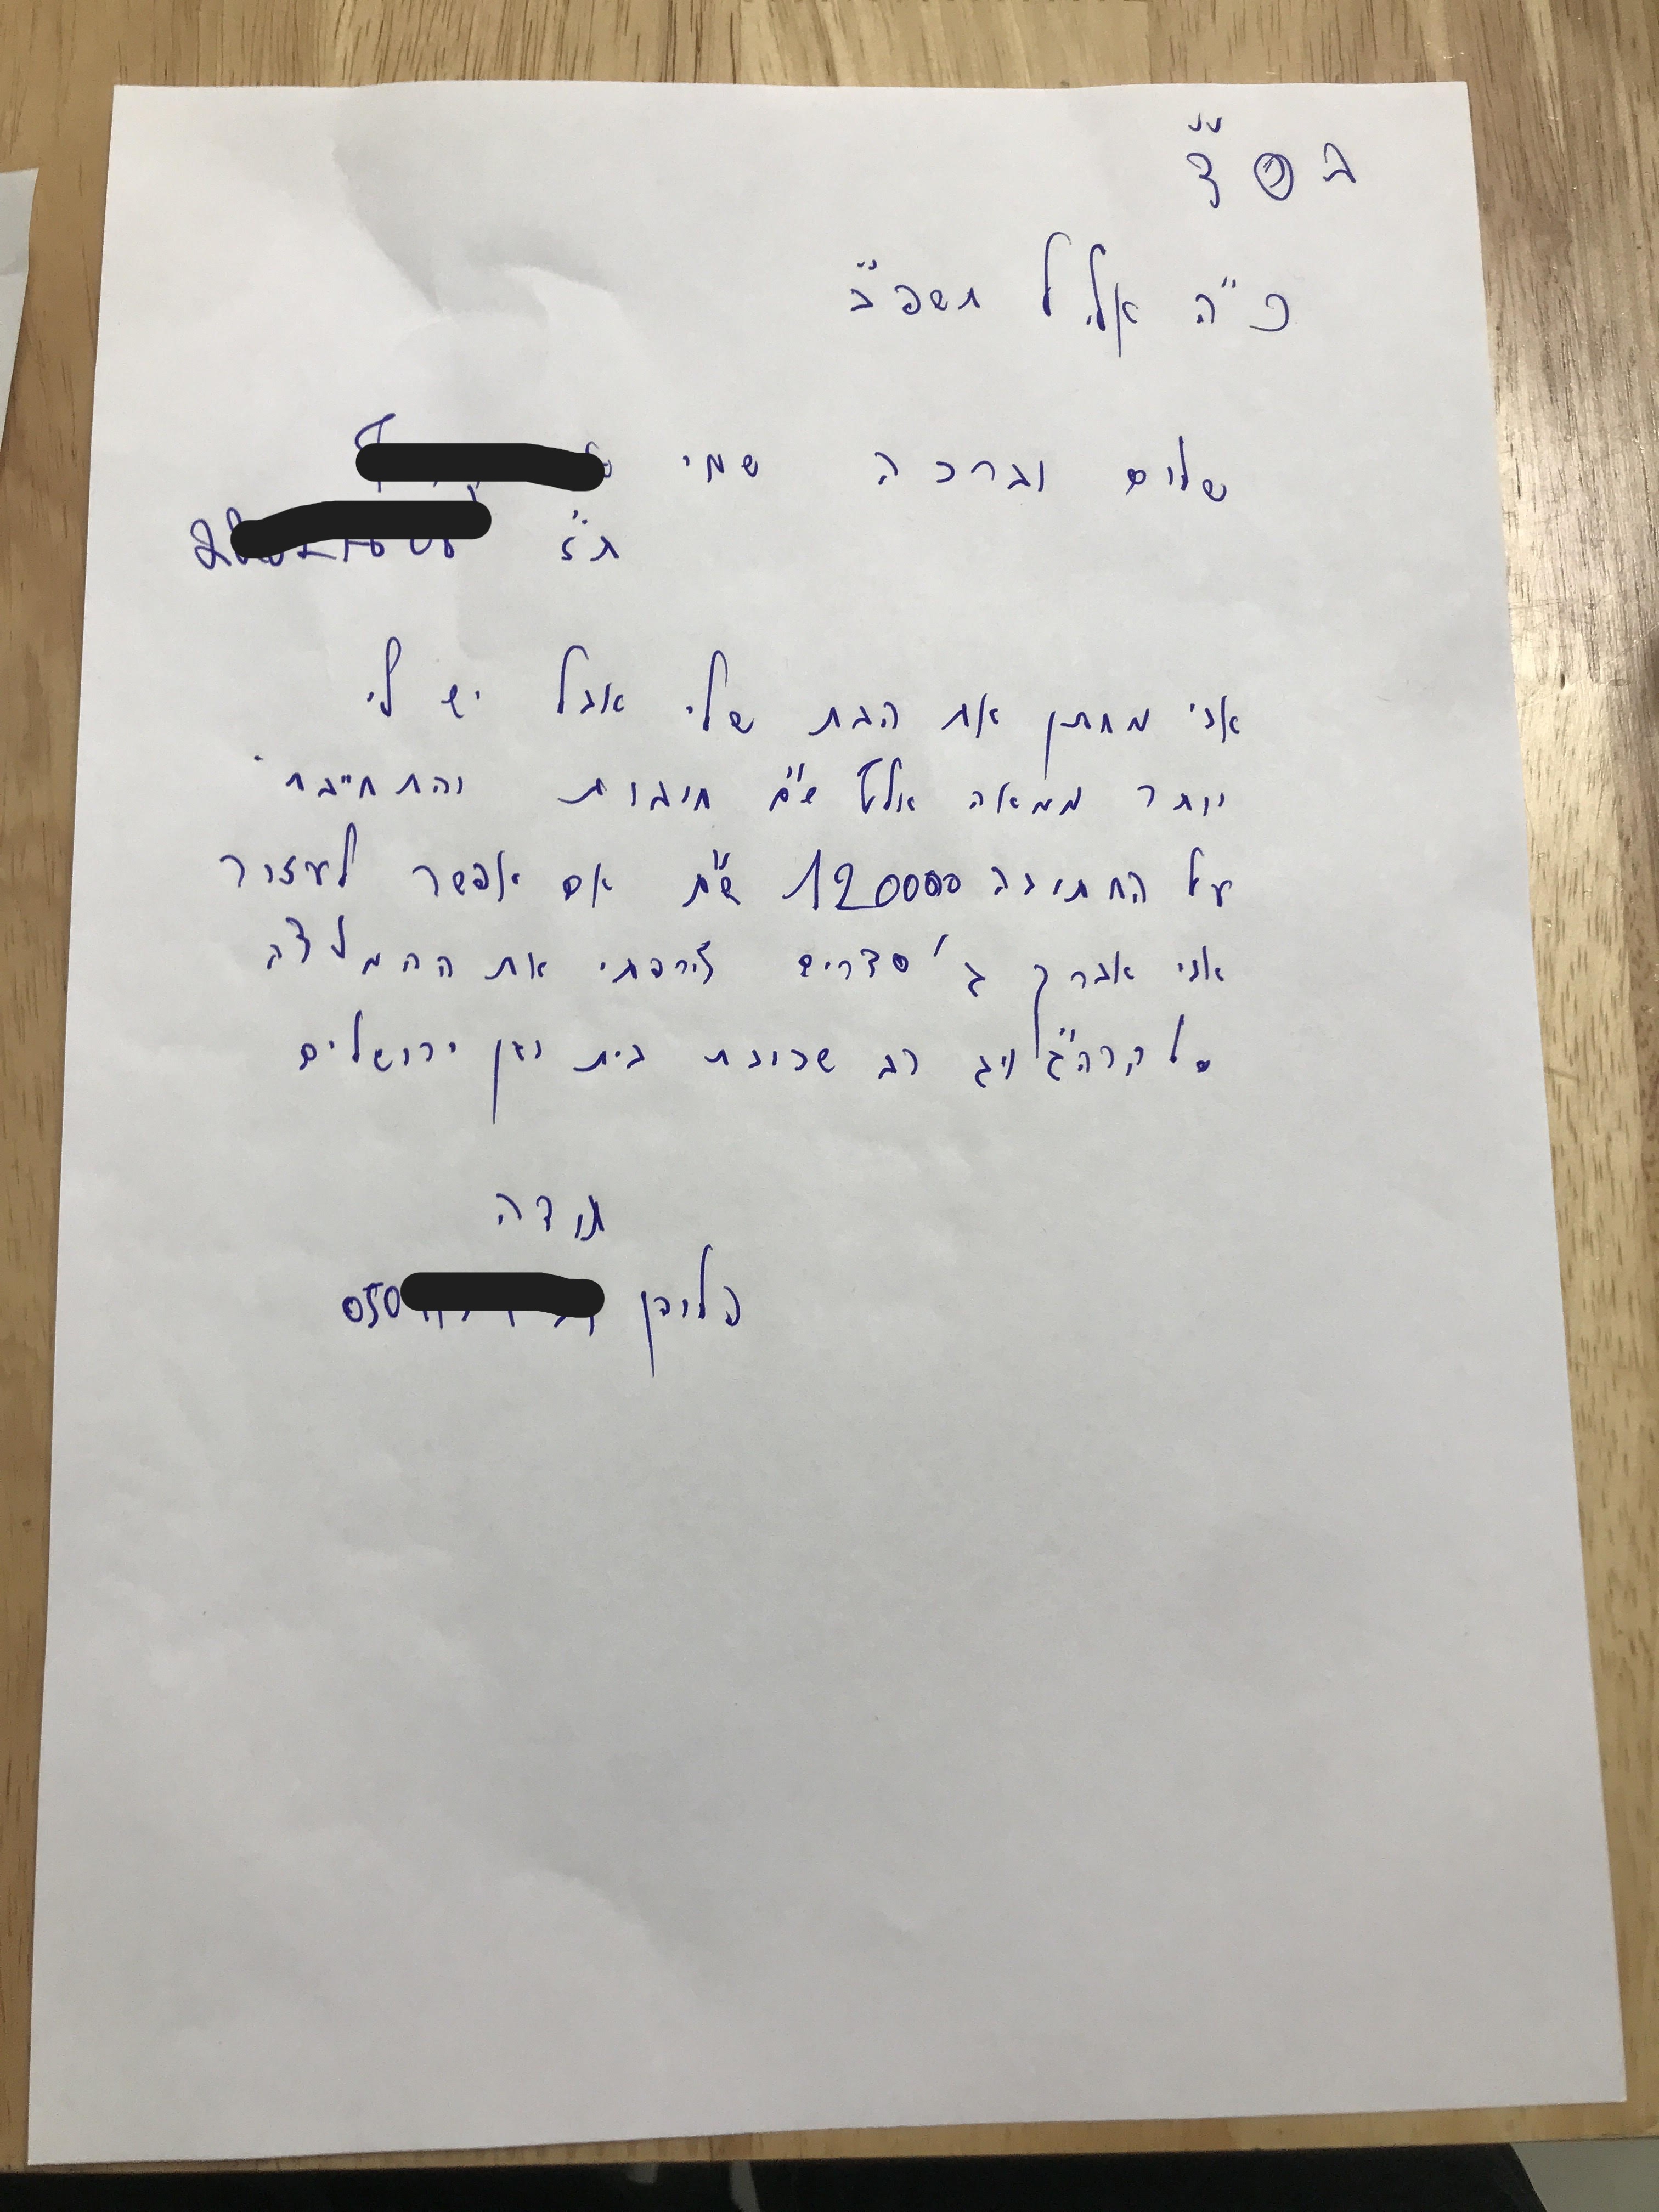 בס"ד
כ"ה אלול תשפ"ב
שלום וברכה שמי
ת"ז
אני מחתן את הבת שלי אבל יש לי
יותר ממאה אלף ש"ח חובות והתחייבתי
על החתונה 120000 ש"ח אם אפשר לעזור
אני אברך ג' סדרים צירפתי את ההמלצה
רב שכונת בית וגן ירושלים
תודה
פלאפון 050